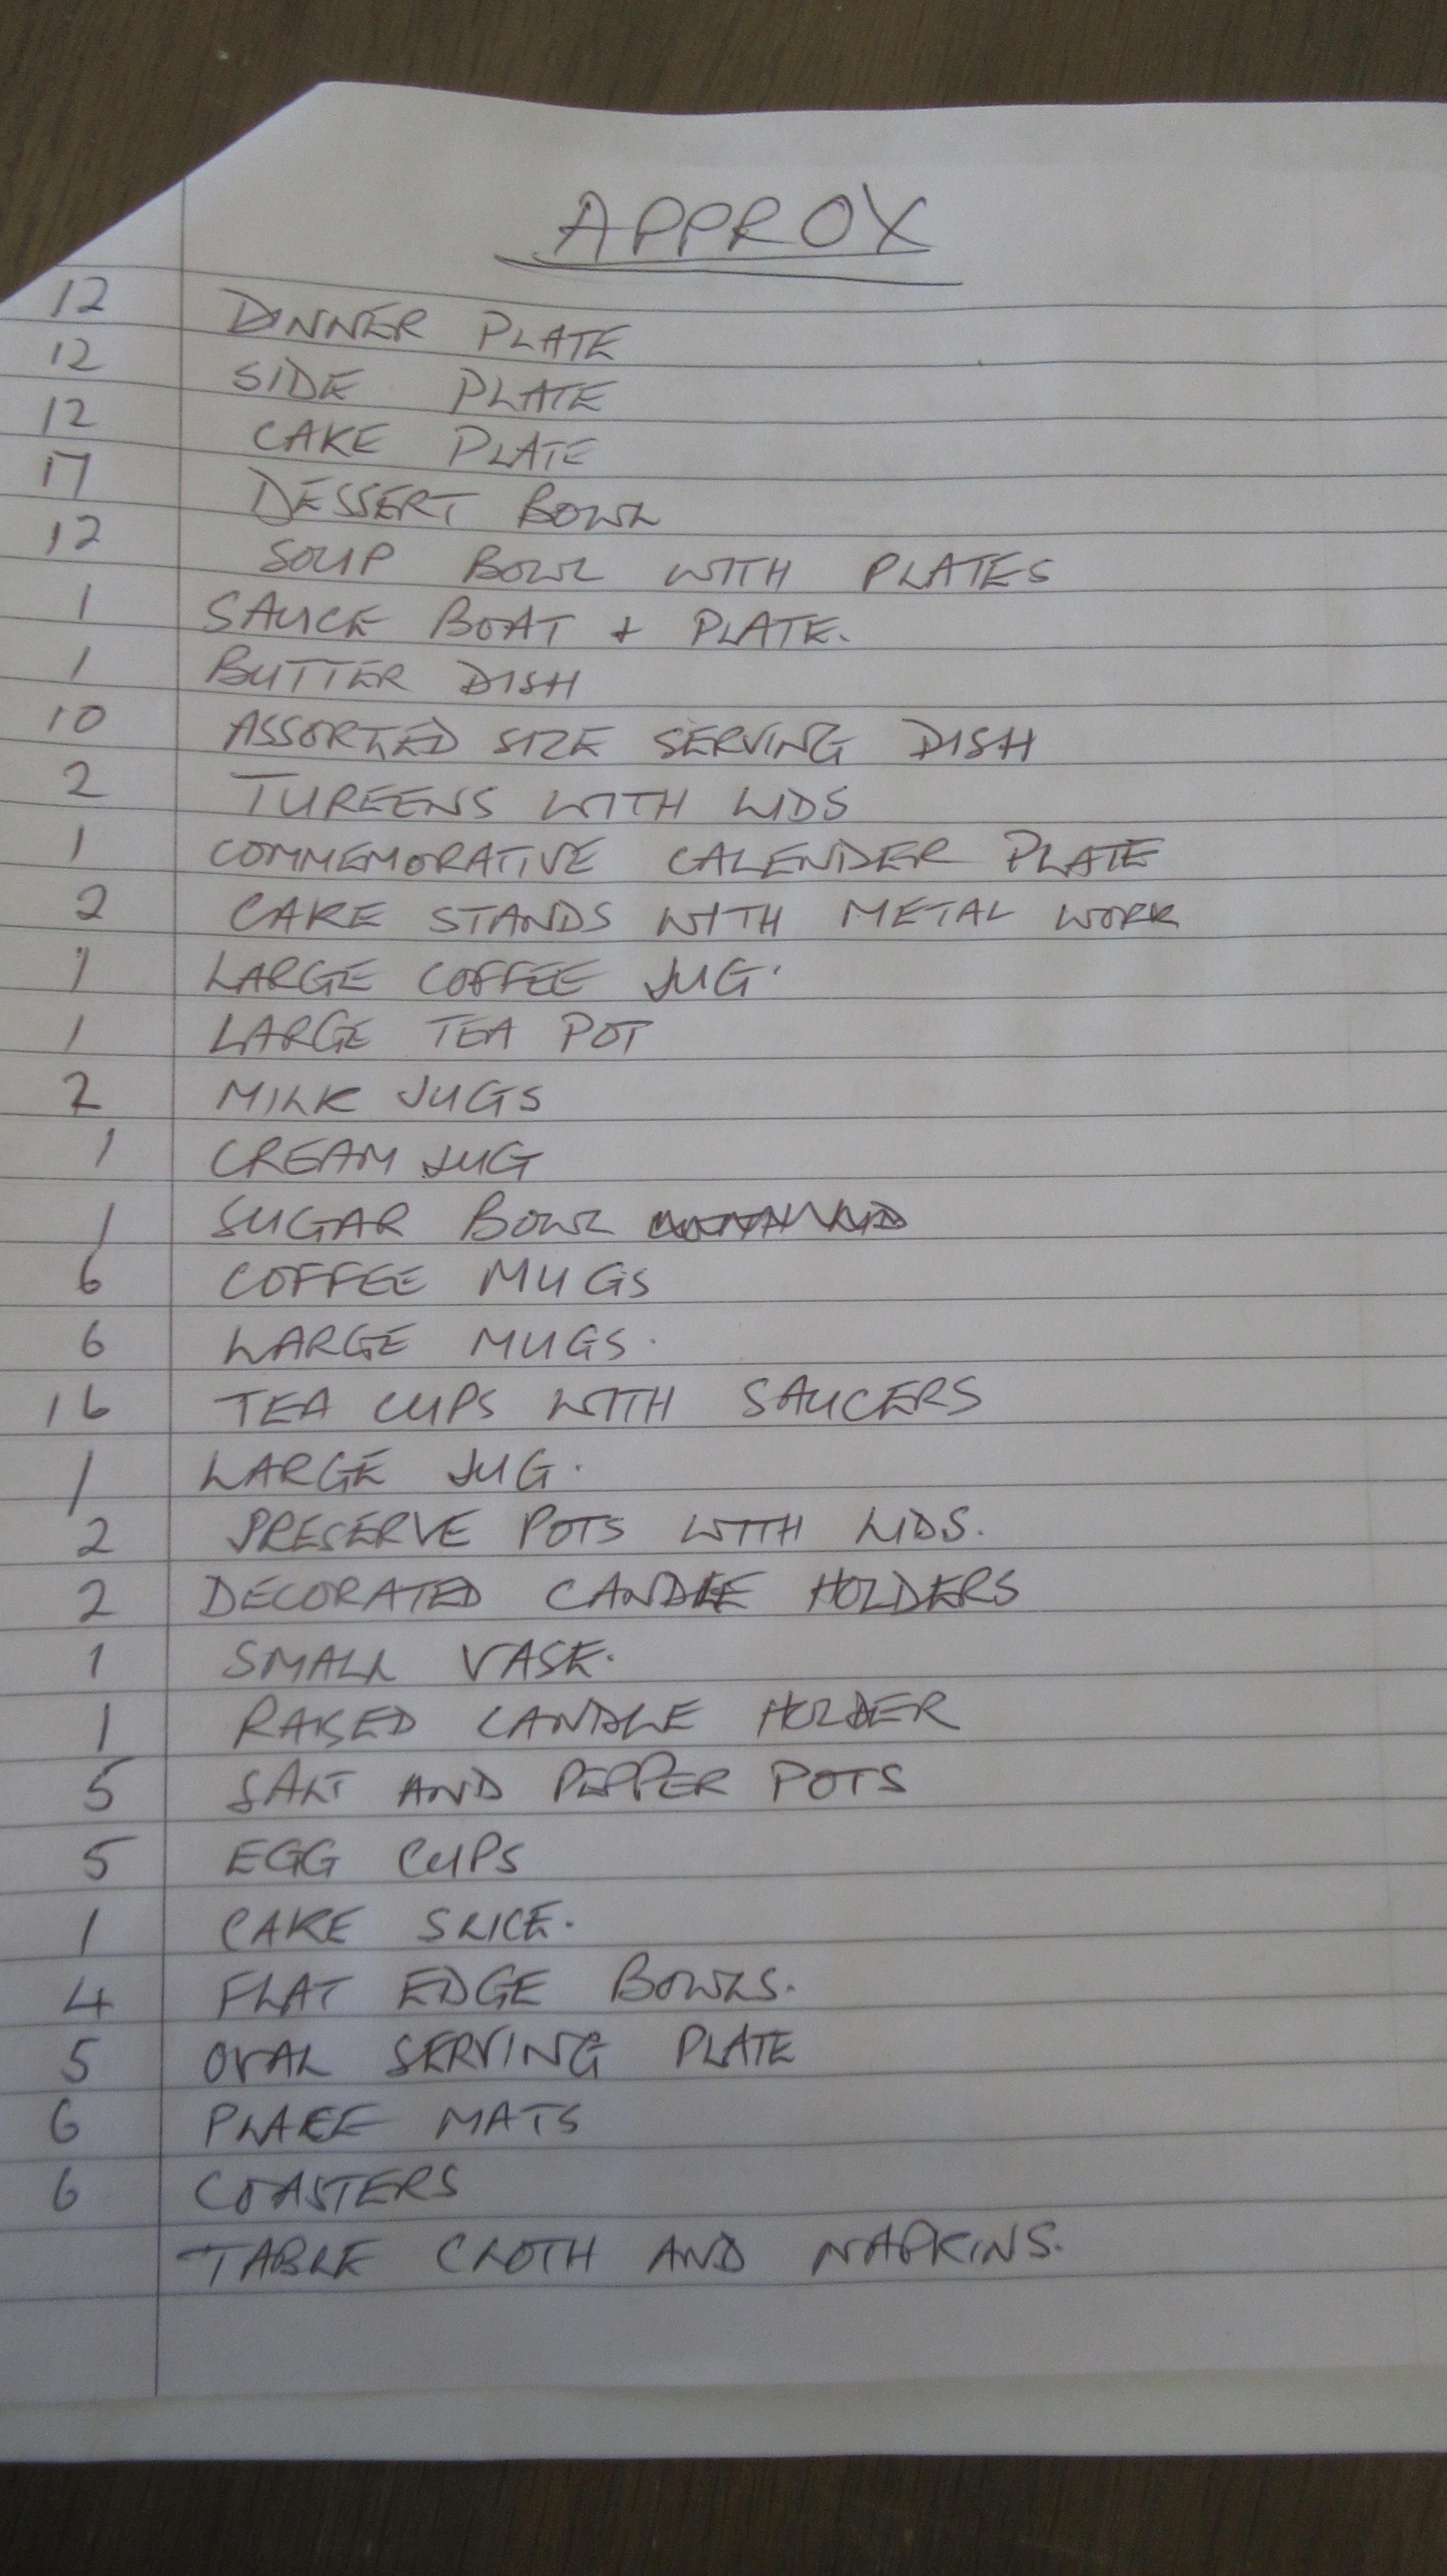 APPROX
12 DINNER PLATE
12 SIDE PLATE
12 CAKE PLATE
17 DESSERT BOWL
12 SOUP BOWL WITH PLATES
1 SAUCE BOAT + PLATE.
1 BUTTER DISH
10 ASSORTED SIZE SERVING DISH
2 TUREENS WITH LIDS
1 COMMEMORATIVE CALENDER PLATE
2 CAKE STANDS WITH METAL WORK
1 LARGE COFFEE JUG.
1 LARGE TEA POT
2 MILK JUGS
1 CREAM JUG
1 SUGAR BOWL
6 COFFEE MUGS
6 LARGE MUGS.
16 TEA CUPS WITH SAUCERS
1 LARGE JUG.
2 PRESERVE POTS WITH LIDS.
2 DECORATED CANDLE HOLDERS
1 SMALL VASE.
1 RAISED CANDLE HOLDER
5 SALT AND PEPPER POTS
5 EGG CUPS
1 CAKE SLICE.
4 FLAT EDGE BOWLS.
5 OVAL SERVING PLATE
6 PLACE MATS
6 COASTERS
TABLE CLOTH AND NAPKINS.